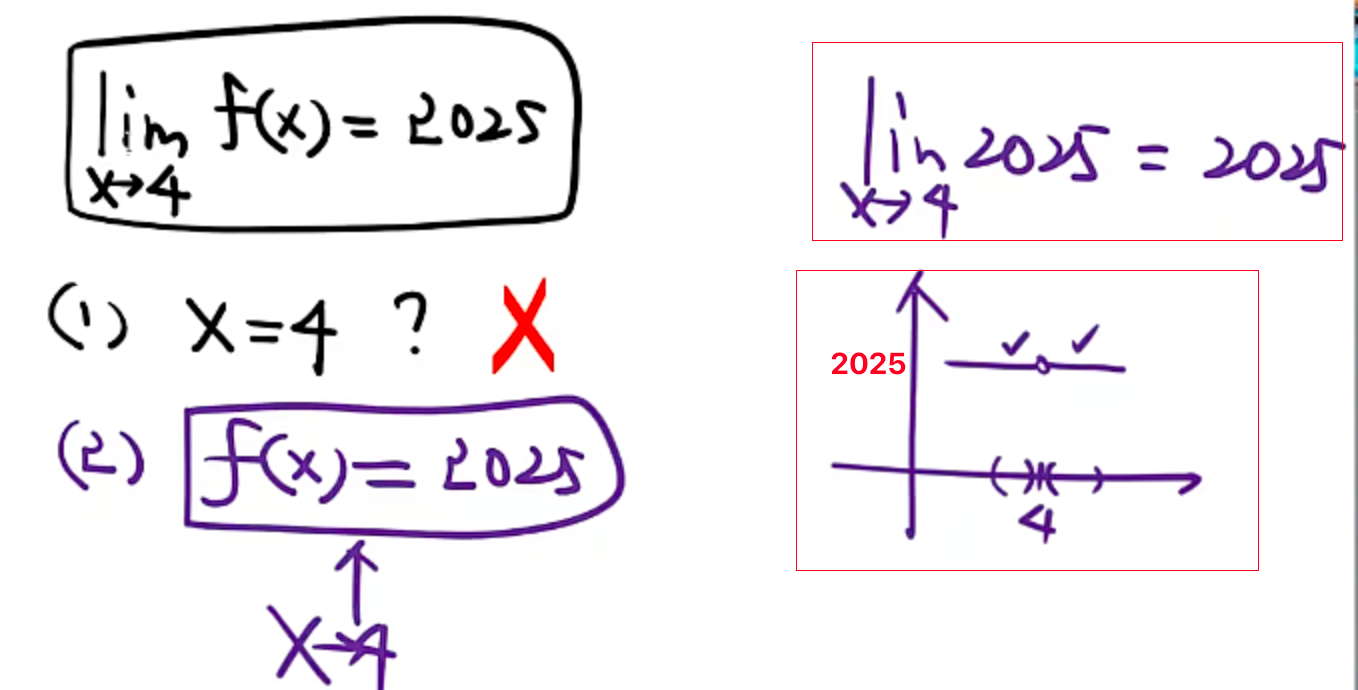 lim f(x) = 2025
x→4
(1) x=4 ? X
(2) f(x) = 2025
x→4
lim 2025 = 2025
x→4
2025
4